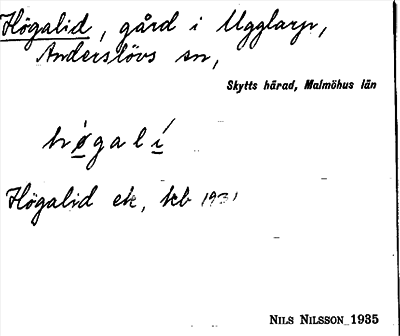 Högalid, gård i Ugglarp,
Anderslövs sn,
Skytts härad, Malmöhus län
hǿ̱galí̱
Högalid ek, kb 1931
NILS NILSSON 1935